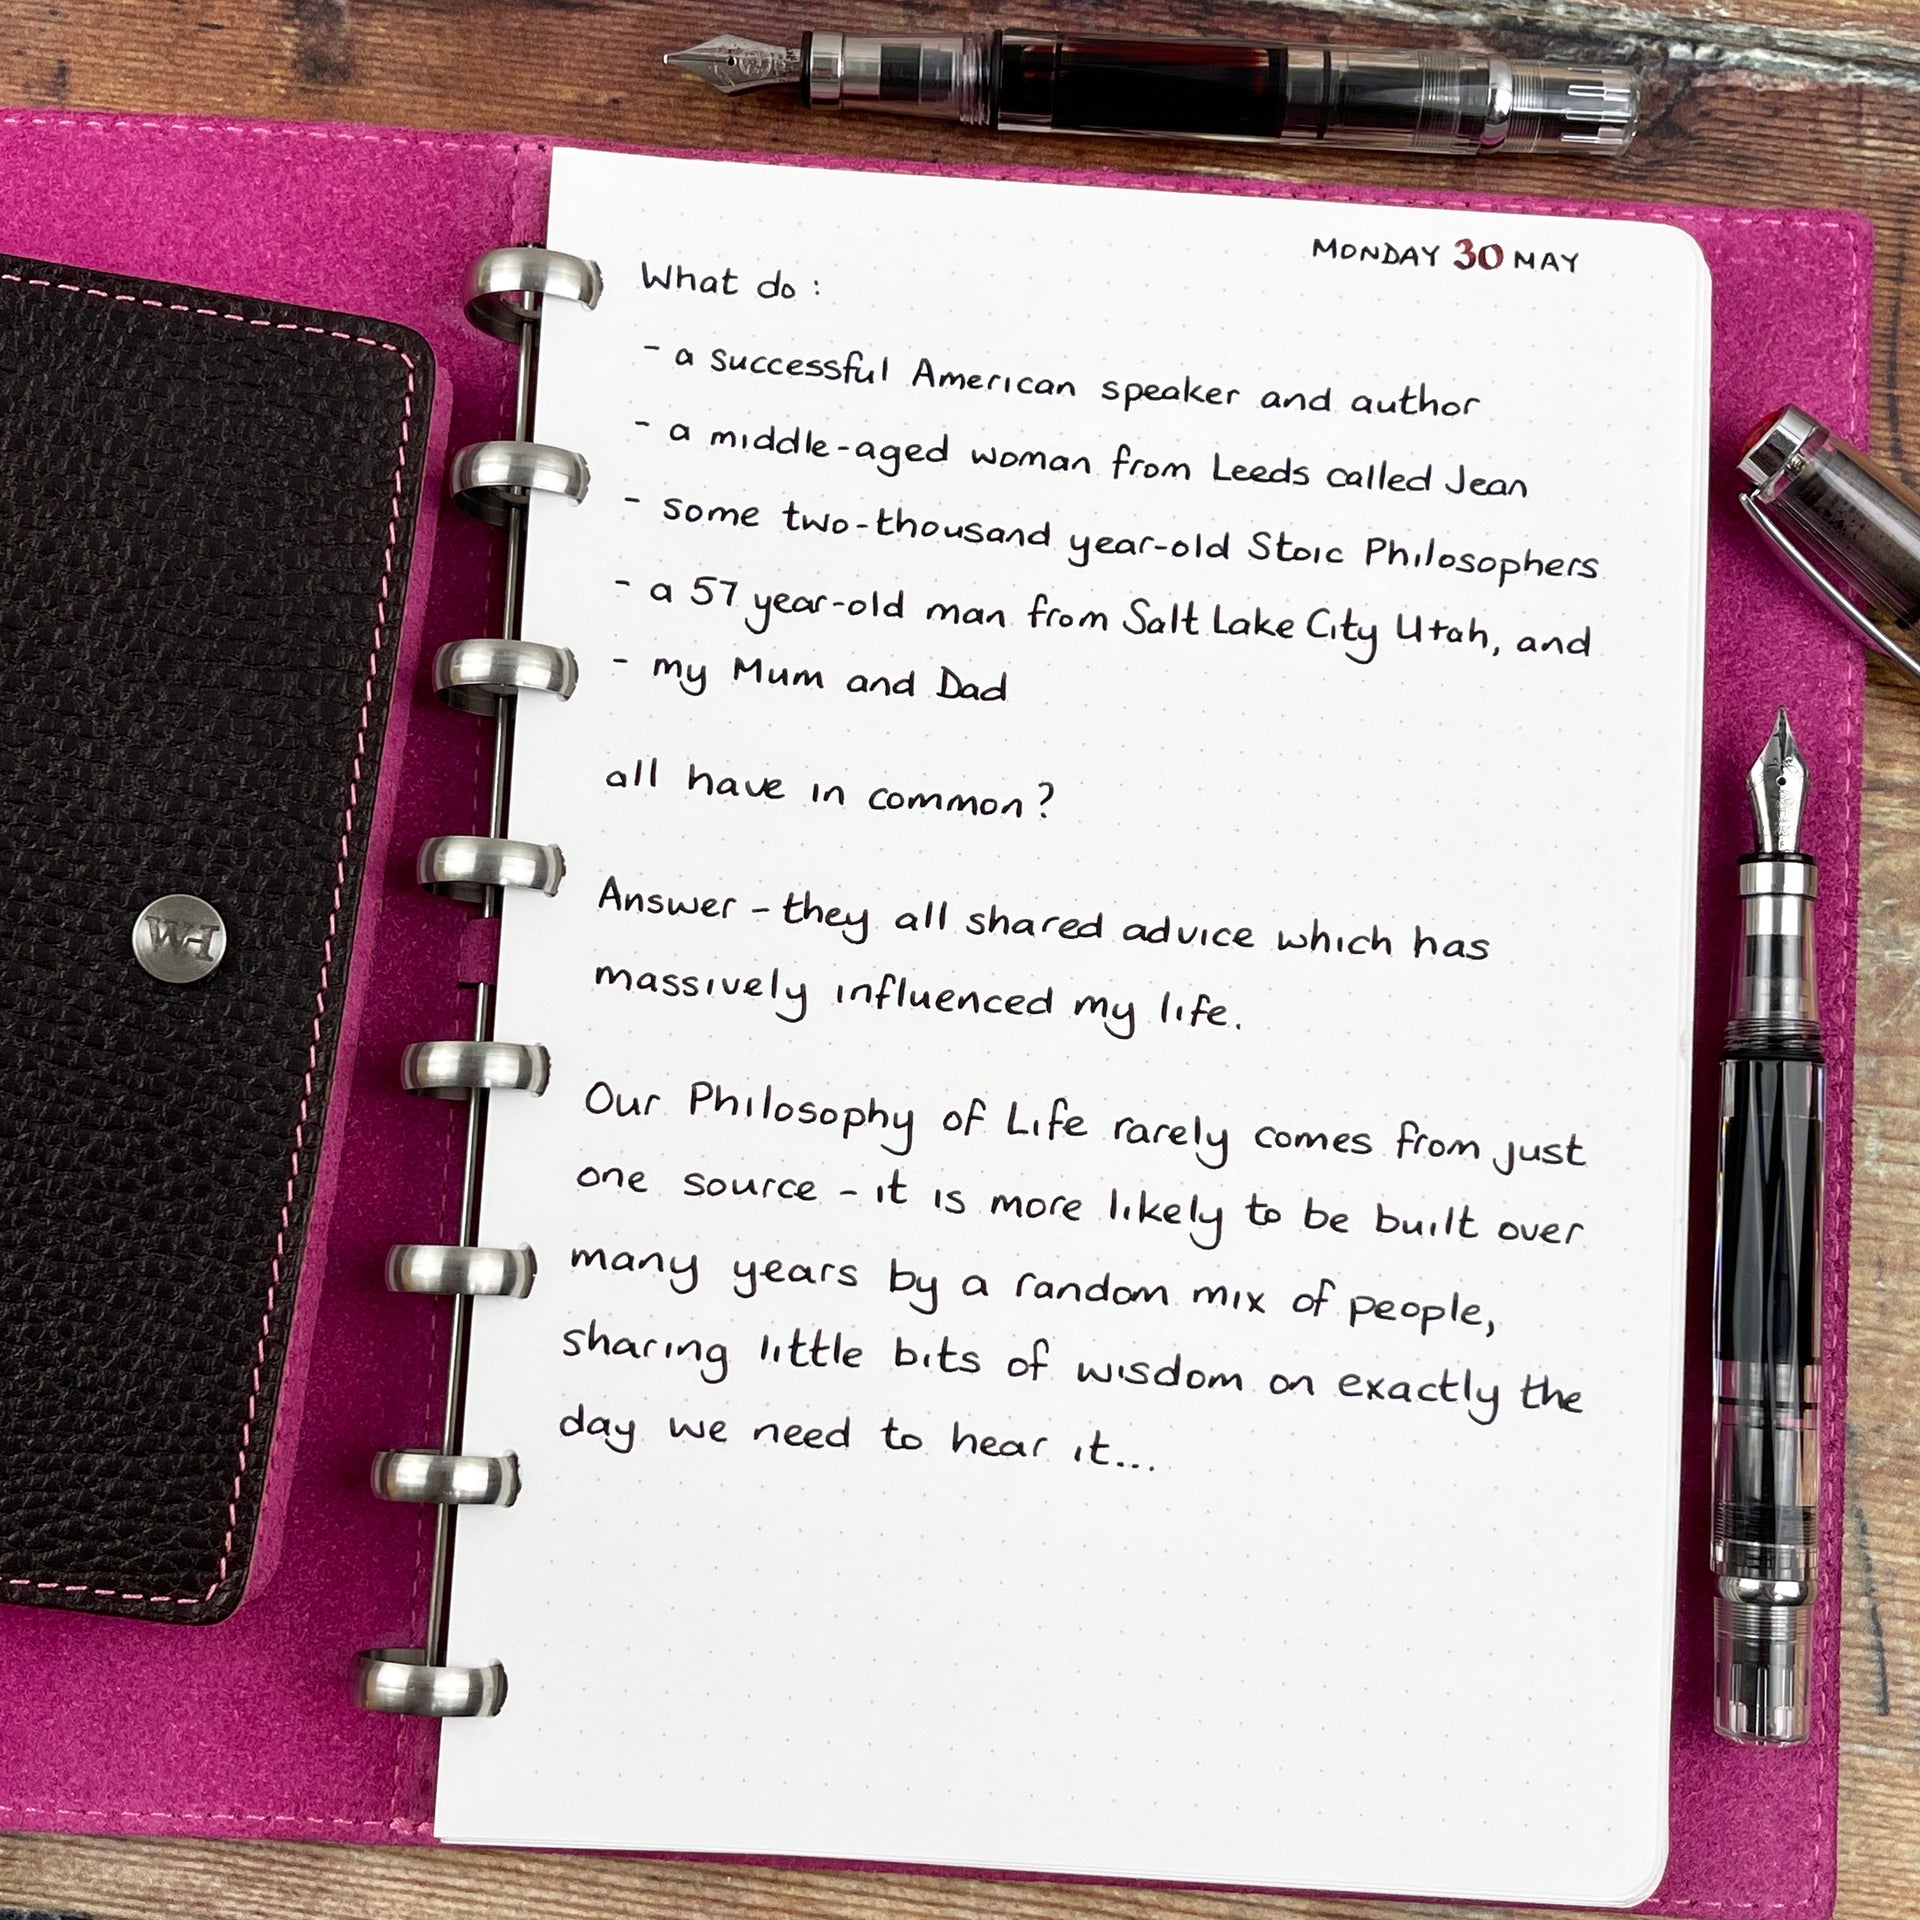 MONDAY 30 MAY
What do :
- a successful American speaker and author
- a middle-aged woman from Leeds called Jean
- some two-thousand year-old Stoic Philosophers
- a 57 year-old man from Salt Lake City Utah, and
- my Mum and Dad
all have in common?
Answer - they all shared advice which has
massively influenced my life.
Our Philosophy of Life rarely comes from just
one source - it is more likely to be built over
many years by a random mix of people,
sharing little bits of wisdom on exactly the
day we need to hear it...
WH